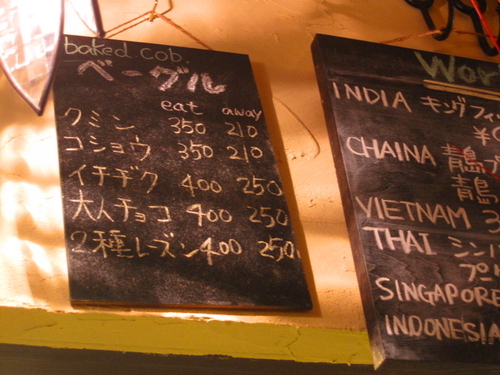 baked cob.
ベーグル
eat away
クミン 350 210
コショウ 350 210
イチヂク 400 250
大人チョコ 400 250
2種レーズン 400 250
Wor
INDIA キングフィ
¥
CHAINA 青島
青島
VIETNAM 3
THAI シン
プ
SINGAPORE
INDONESIA